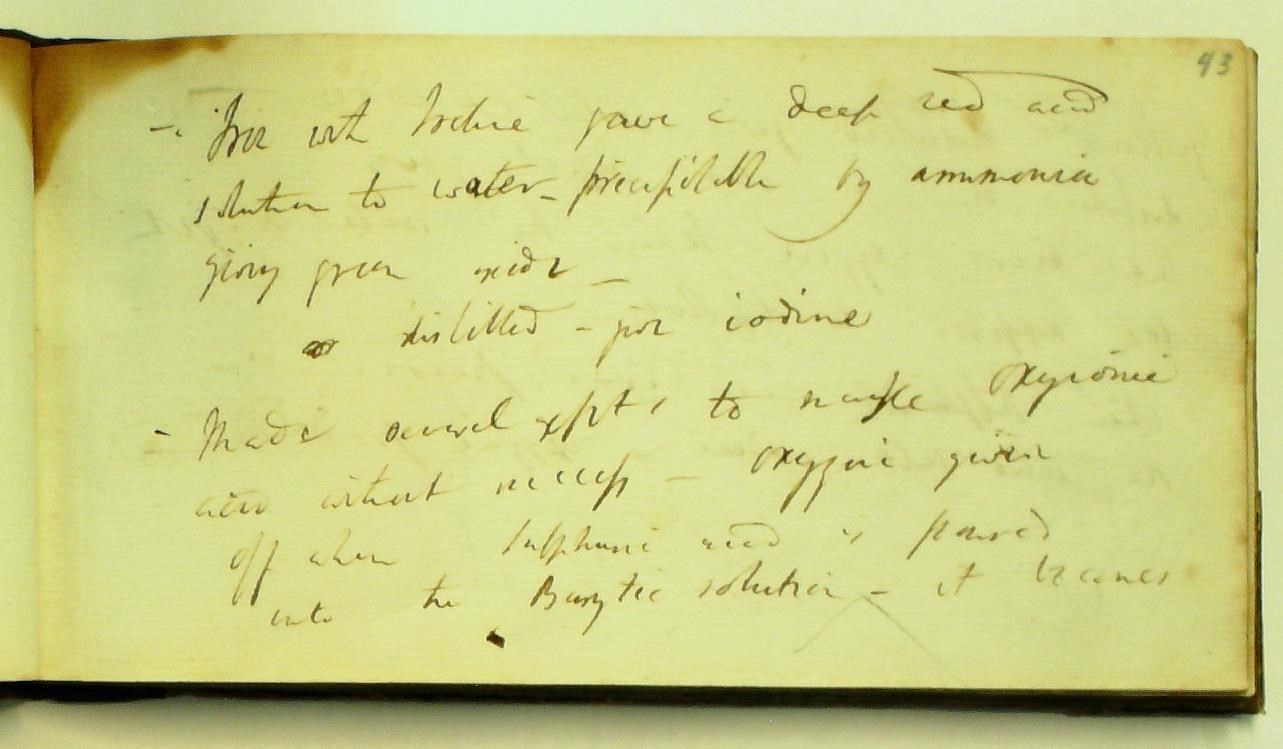 43
- Iron with Iodine gave a deep red acid
solution to water - precipitable by ammonia
giving green oxide -
distilled - gave iodine
- Made several expts to make Oxyiodic
acid without success - oxygene given
off when Sulphuric acid is poured
into the Barytic solution - it becomes